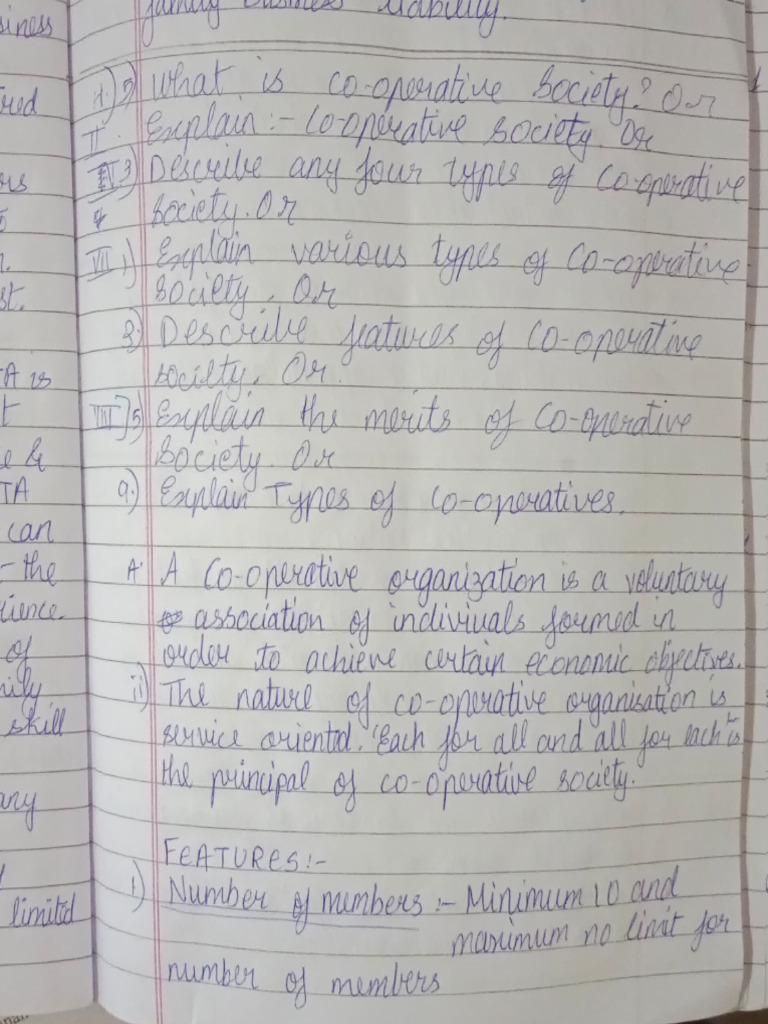 family business liability.
II.) 5) What is Co-operative Society? Or
II. Explain:- Co-operative society. Or
III 3) Describe any four types of Co-operative
society. Or
VII 1) Explain various types of Co-operative
society. Or
3) Describe features of Co-operative
socilty. Or.
VIII] 5) Explain the merits of Co-operative
Society. Or
9.) Explain Types of Co-operatives.
A. A Co-operative organization is a voluntary
association of indiviuals formed in
order to achieve certain economic objectives.
ii) The nature of co-operative organisation is
service oriented. "Each for all and all for each" is
the principal of co-operative society.
FEATURES:-
1) Number of members :- Minimum 10 and
maximum no limit for
number of members
siness
red
rs
5
n.
st.
A is
t
e &
TA
can
- the
rience.
of
mily
skill
any
limited